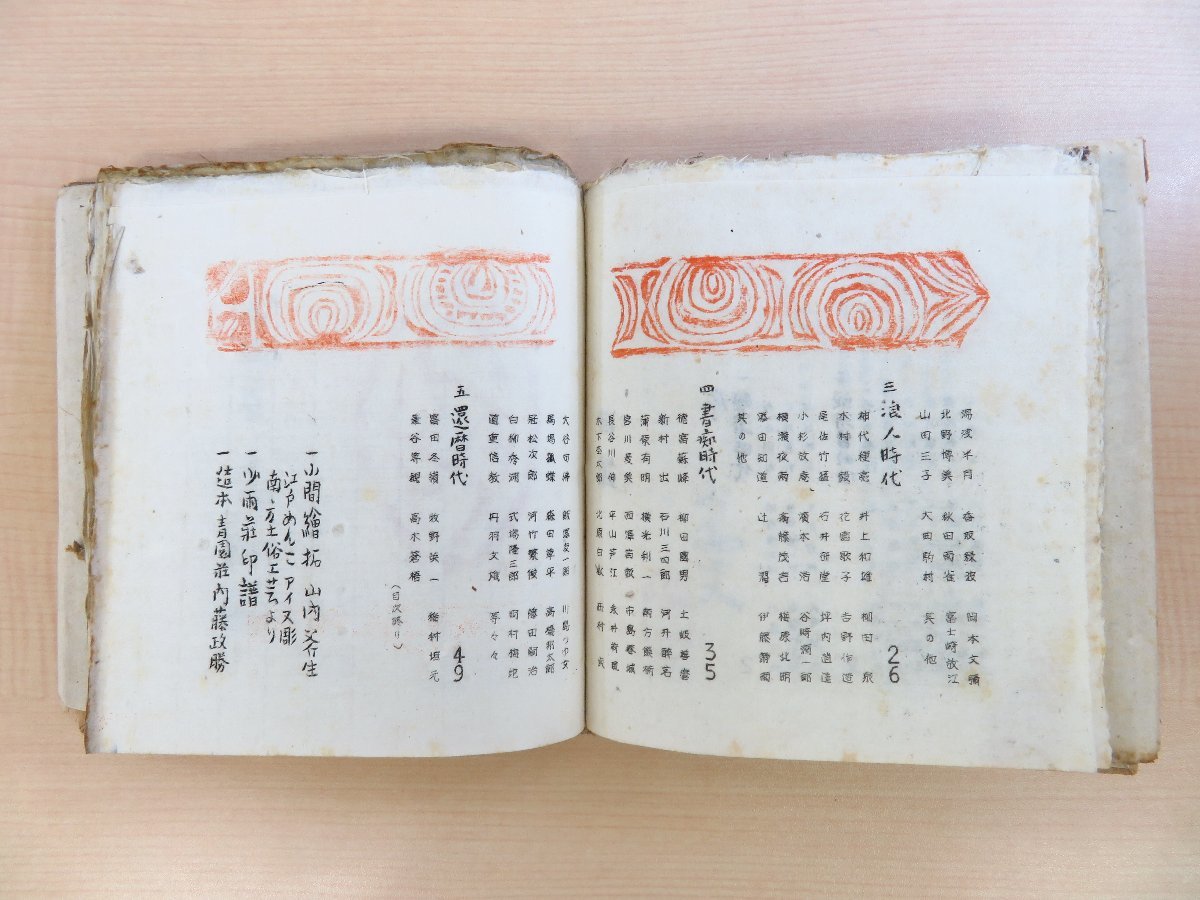 湯浅半月 香取緑波 岡本文彌
北野博美 秋田雨雀 富士崎放江
山内三子 大田駒村 其の他
三 浪人時代 26
神代種亮 井上和雄 柳田泉
木村毅 花園歌子 吉野作造
尾佐竹猛 石井研堂 坪内逍遙
小杉放庵 濱本浩 谷崎潤一郎
横瀬夜雨 斎藤茂吉 梅原北明
添田知道 辻潤 伊藤晴雨
其の他
四 書痴時代 35
徳富蘇峰 柳田國男 土岐善麿
新村出 石川三四郎 河井酔茗
蒲原有明 横光利一 南方熊楠
宮川曼魚 西澤笛畝 市島春城
長谷川伸 平山芦江 永井荷風
木下杢太郎 北原白秋
大谷句佛 川島つゆ女
馬場孤蝶 森田草平
冠松次郎 河竹繁俊 藤田嗣治
白柳秀湖 式場隆三郎
道重信教 丹羽文雄 等々々
五 還暦時代 49
富田冬嶺 牧野英一
高木蒼梧
(目次終り)
一 小間繪拓 山内
江戸めんこ アイヌ彫
南方土俗工芸より
一 少雨荘印譜
一 造本 青園荘内藤政勝